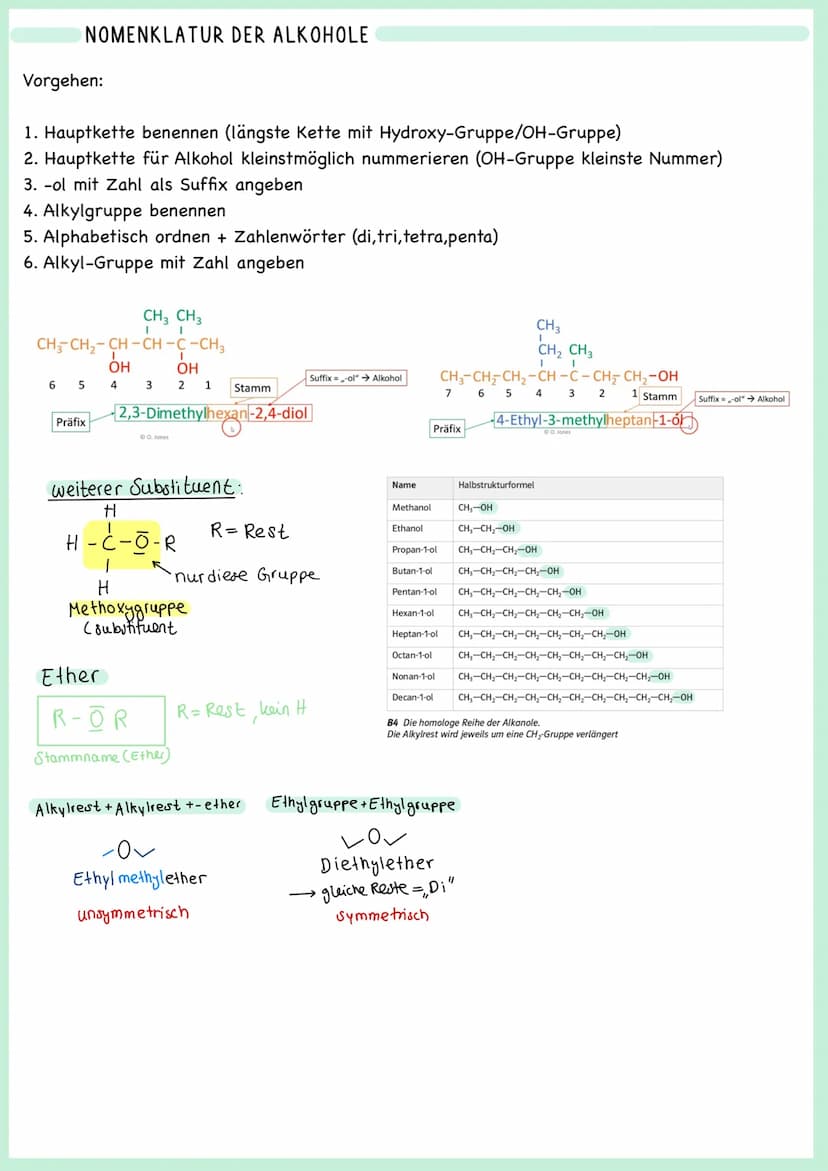 NOMENKLATUR DER ALKOHOLE
Vorgehen:
1. Hauptkette benennen (längste Kette mit Hydroxy-Gruppe/OH-Gruppe)
2. Hauptkette für Alkohol kleinstmöglich nummerieren (OH-Gruppe kleinste Nummer)
3. -ol mit Zahl als Suffix angeben
4. Alkylgruppe benennen
5. Alphabetisch ordnen + Zahlenwörter (di,tri,tetra,penta)
6. Alkyl-Gruppe mit Zahl angeben
CH₃ CH₃
CH₃-CH₂-CH-CH-C-CH₃
OH OH
6 5 4 3 2 1
Stamm
Suffix = „-ol" → Alkohol
Präfix
2,3-Dimethylhexan-2,4-diol
© O. Jones
CH₃
CH₂ CH₃
CH₃-CH₂-CH₂-CH-C-CH₂-CH₂-OH
7 6 5 4 3 2 1
Stamm
Suffix = „-ol" → Alkohol
Präfix
4-Ethyl-3-methylheptan-1-ol
© O. Jones
weiterer Substituent:
H
H-C-O-R
H
R = Rest
nur diese Gruppe
Methoxygruppe
(substituent
Ether
R-O R
R = Rest, kein H
Stammname (Ether)
Name Halbstrukturformel
Methanol CH₃—OH
Ethanol CH₃—CH₂—OH
Propan-1-ol CH₃—CH₂—CH₂—OH
Butan-1-ol CH₃—CH₂—CH₂—CH₂—OH
Pentan-1-ol CH₃—CH₂—CH₂—CH₂—CH₂—OH
Hexan-1-ol CH₃—CH₂—CH₂—CH₂—CH₂—CH₂—OH
Heptan-1-ol CH₃—CH₂—CH₂—CH₂—CH₂—CH₂—CH₂—OH
Octan-1-ol CH₃—CH₂—CH₂—CH₂—CH₂—CH₂—CH₂—CH₂—OH
Nonan-1-ol CH₃—CH₂—CH₂—CH₂—CH₂—CH₂—CH₂—CH₂—CH₂—OH
Decan-1-ol CH₃—CH₂—CH₂—CH₂—CH₂—CH₂—CH₂—CH₂—CH₂—CH₂—OH
B4 Die homologe Reihe der Alkanole.
Die Alkylrest wird jeweils um eine CH₂-Gruppe verlängert
Alkylrest + Alkylrest + - ether
O
Ethylmethylether
unsymmetrisch
Ethylgruppe + Ethylgruppe
O
Diethylether
→ gleiche Reste = „Di"
symmetrisch